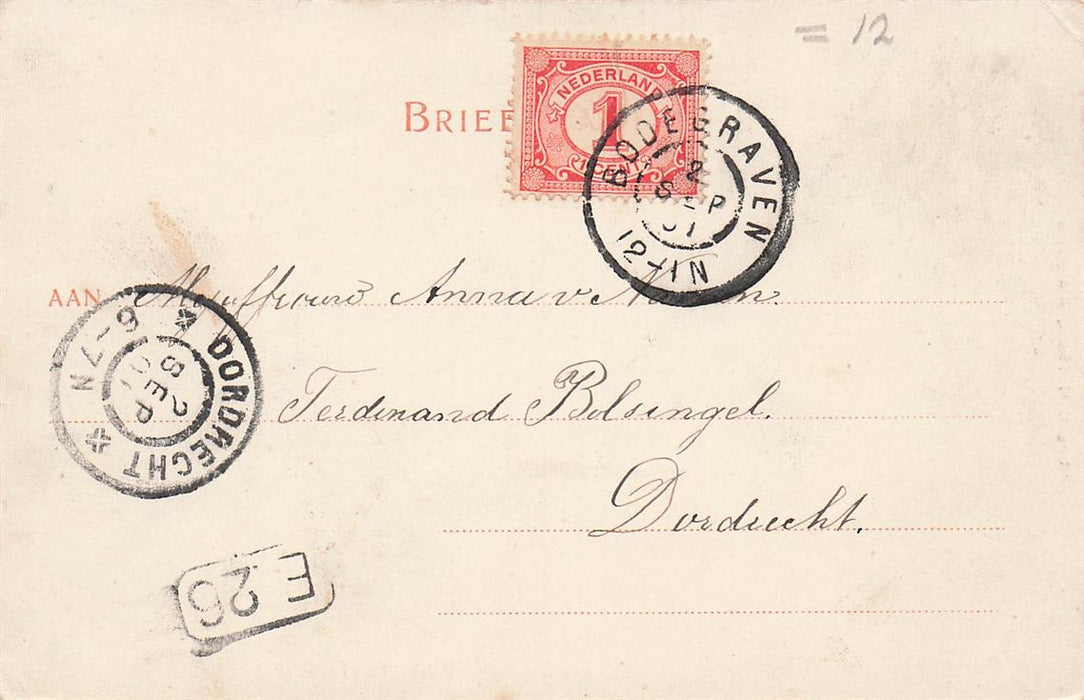 = 12
BRIEF
NEDERLAND
1
1 CENT
BODEGRAVEN
2
SEP
01
12-1N
AAN Mejuffrouw Anna v
Ferdinand Bolsingel.
Dordrecht.
DORDRECHT
6-7N
2
SEP
01
E 26